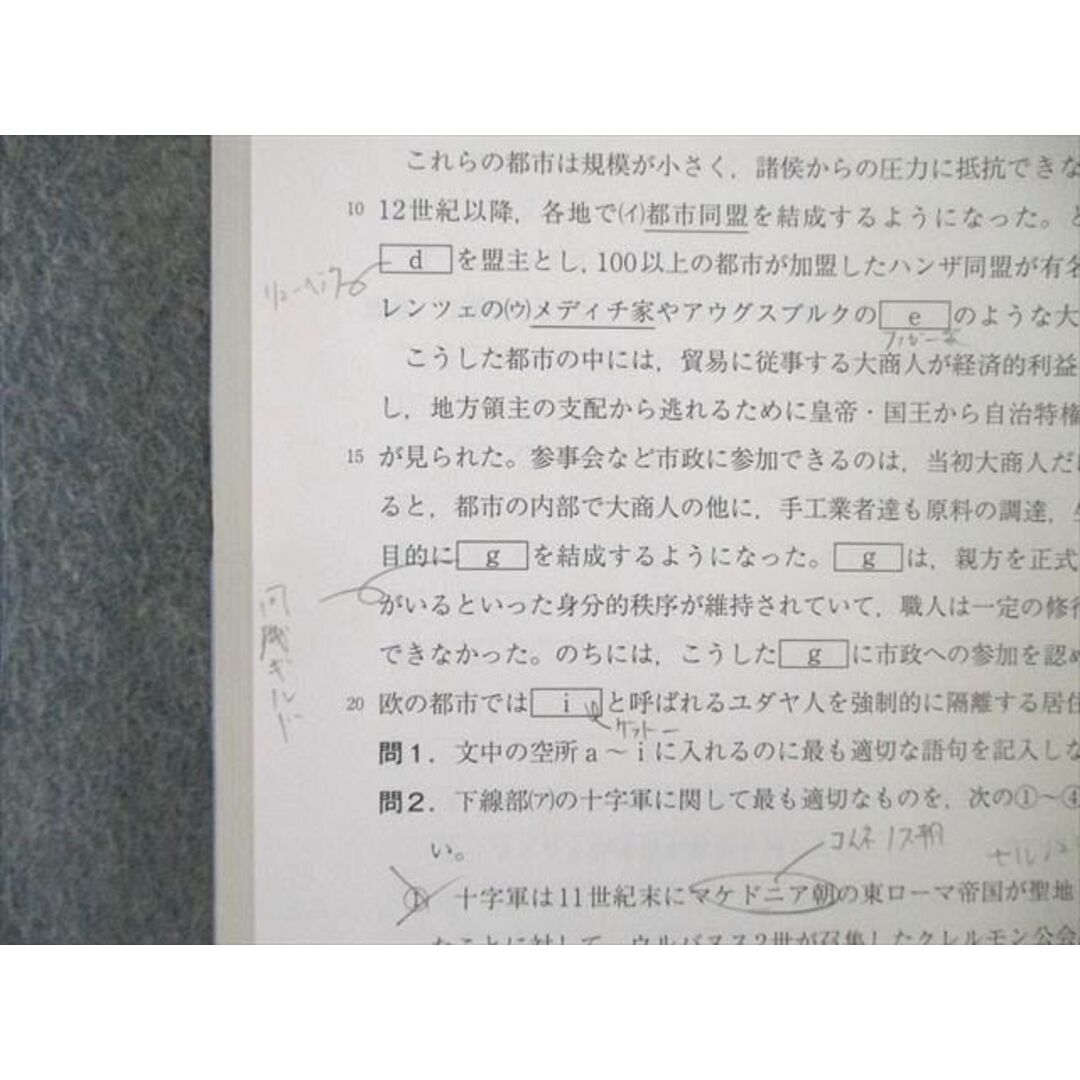 これらの都市は規模が小さく，諸侯からの圧力に抵抗できな
10 12世紀以降，各地で(イ)都市同盟を結成するようになった。と
d を盟主とし，100以上の都市が加盟したハンザ同盟が有名
リューベック
レンツェの(ウ)メディチ家やアウグスブルクの e のような大
フッガー家
こうした都市の中には，貿易に従事する大商人が経済的利益
し，地方領主の支配から逃れるために皇帝・国王から自治特権
15 が見られた。参事会など市政に参加できるのは，当初大商人だけ
ると，都市の内部で大商人の他に，手工業者達も原料の調達，生
目的に g を結成するようになった。 g は，親方を正式
同職ギルド
がいるといった身分的秩序が維持されていて，職人は一定の修行
できなかった。のちには，こうした g に市政への参加を認め
20 欧の都市では i と呼ばれるユダヤ人を強制的に隔離する居住
ゲットー
問1．文中の空所a～iに入れるのに最も適切な語句を記入しな
問2．下線部(ア)の十字軍に関して最も適切なものを，次の①～④
い。
コムネノス朝
セルジュ
① 十字軍は11世紀末にマケドニア朝の東ローマ帝国が聖地
たことに対して，ウルバヌス2世が召集したクレルモン公会